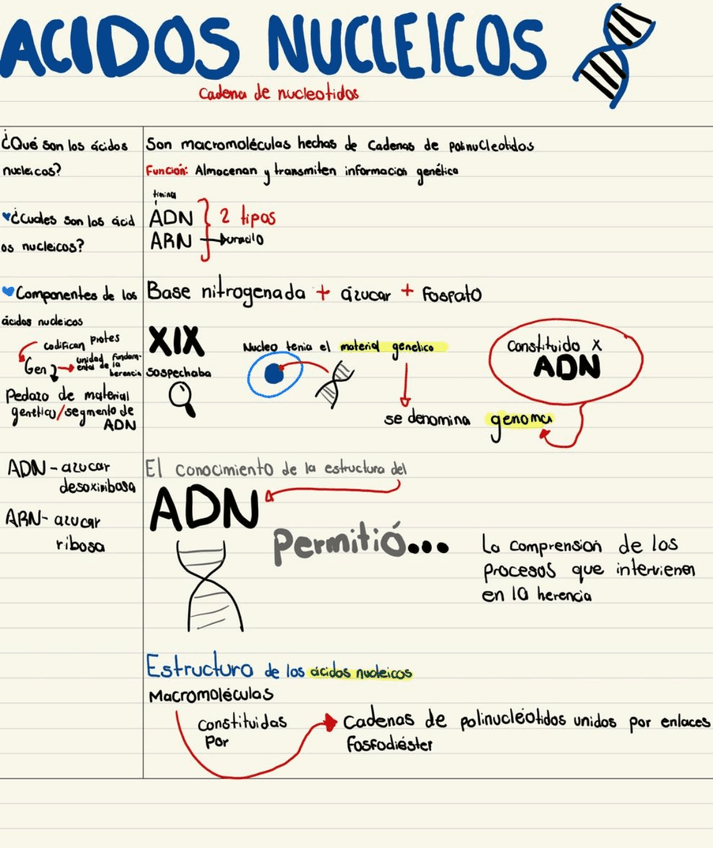 ACIDOS NUCLEICOS
Cadena de nucleotidos
¿Qué son los ácidos
nucleicos?
Son macromoléculas hechas de Cadenas de polinucleotidos
Funcion: Almacenan y transmiten informacion genética
♥¿Cuales son los ácid
os nucleicos?
timina
ADN
ARN → uracilo
2 tipos
♥Componentes de los
ácidos nucleicos
Base nitrogenada + ázucar + Fosfato
codifican protes
Gen → unidad fundam-
ental de la
herencia
Pedazo de material
genetico/segmento de
ADN
XIX
Sospechaba
Nucleo tenia el material genetico
se denomina genoma
Constituido x
ADN
ADN-azucar
desoxiribosa
ARN-azucar
ribosa
El conocimiento de la estructura del
ADN
Permitió...
La comprension de los
procesos que intervienen
en la herencia
Estructura de los ácidos nucleicos
Macromoléculas
Constituidas
Por
Cadenas de polinucleótidos unidos por enlaces
Fosfodiéster